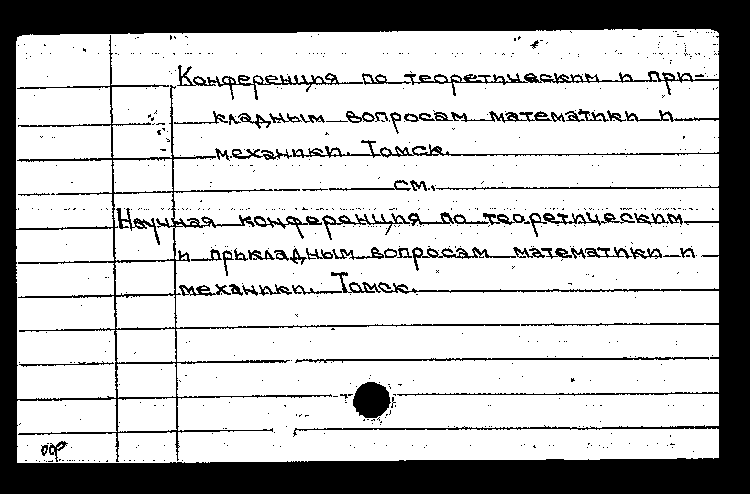 Конференция по теоретическим и при-
кладным вопросам математики и
механики. Томск.
см.
Научная конференция по теоретическим
и прикладным вопросам математики и
механики. Томск.